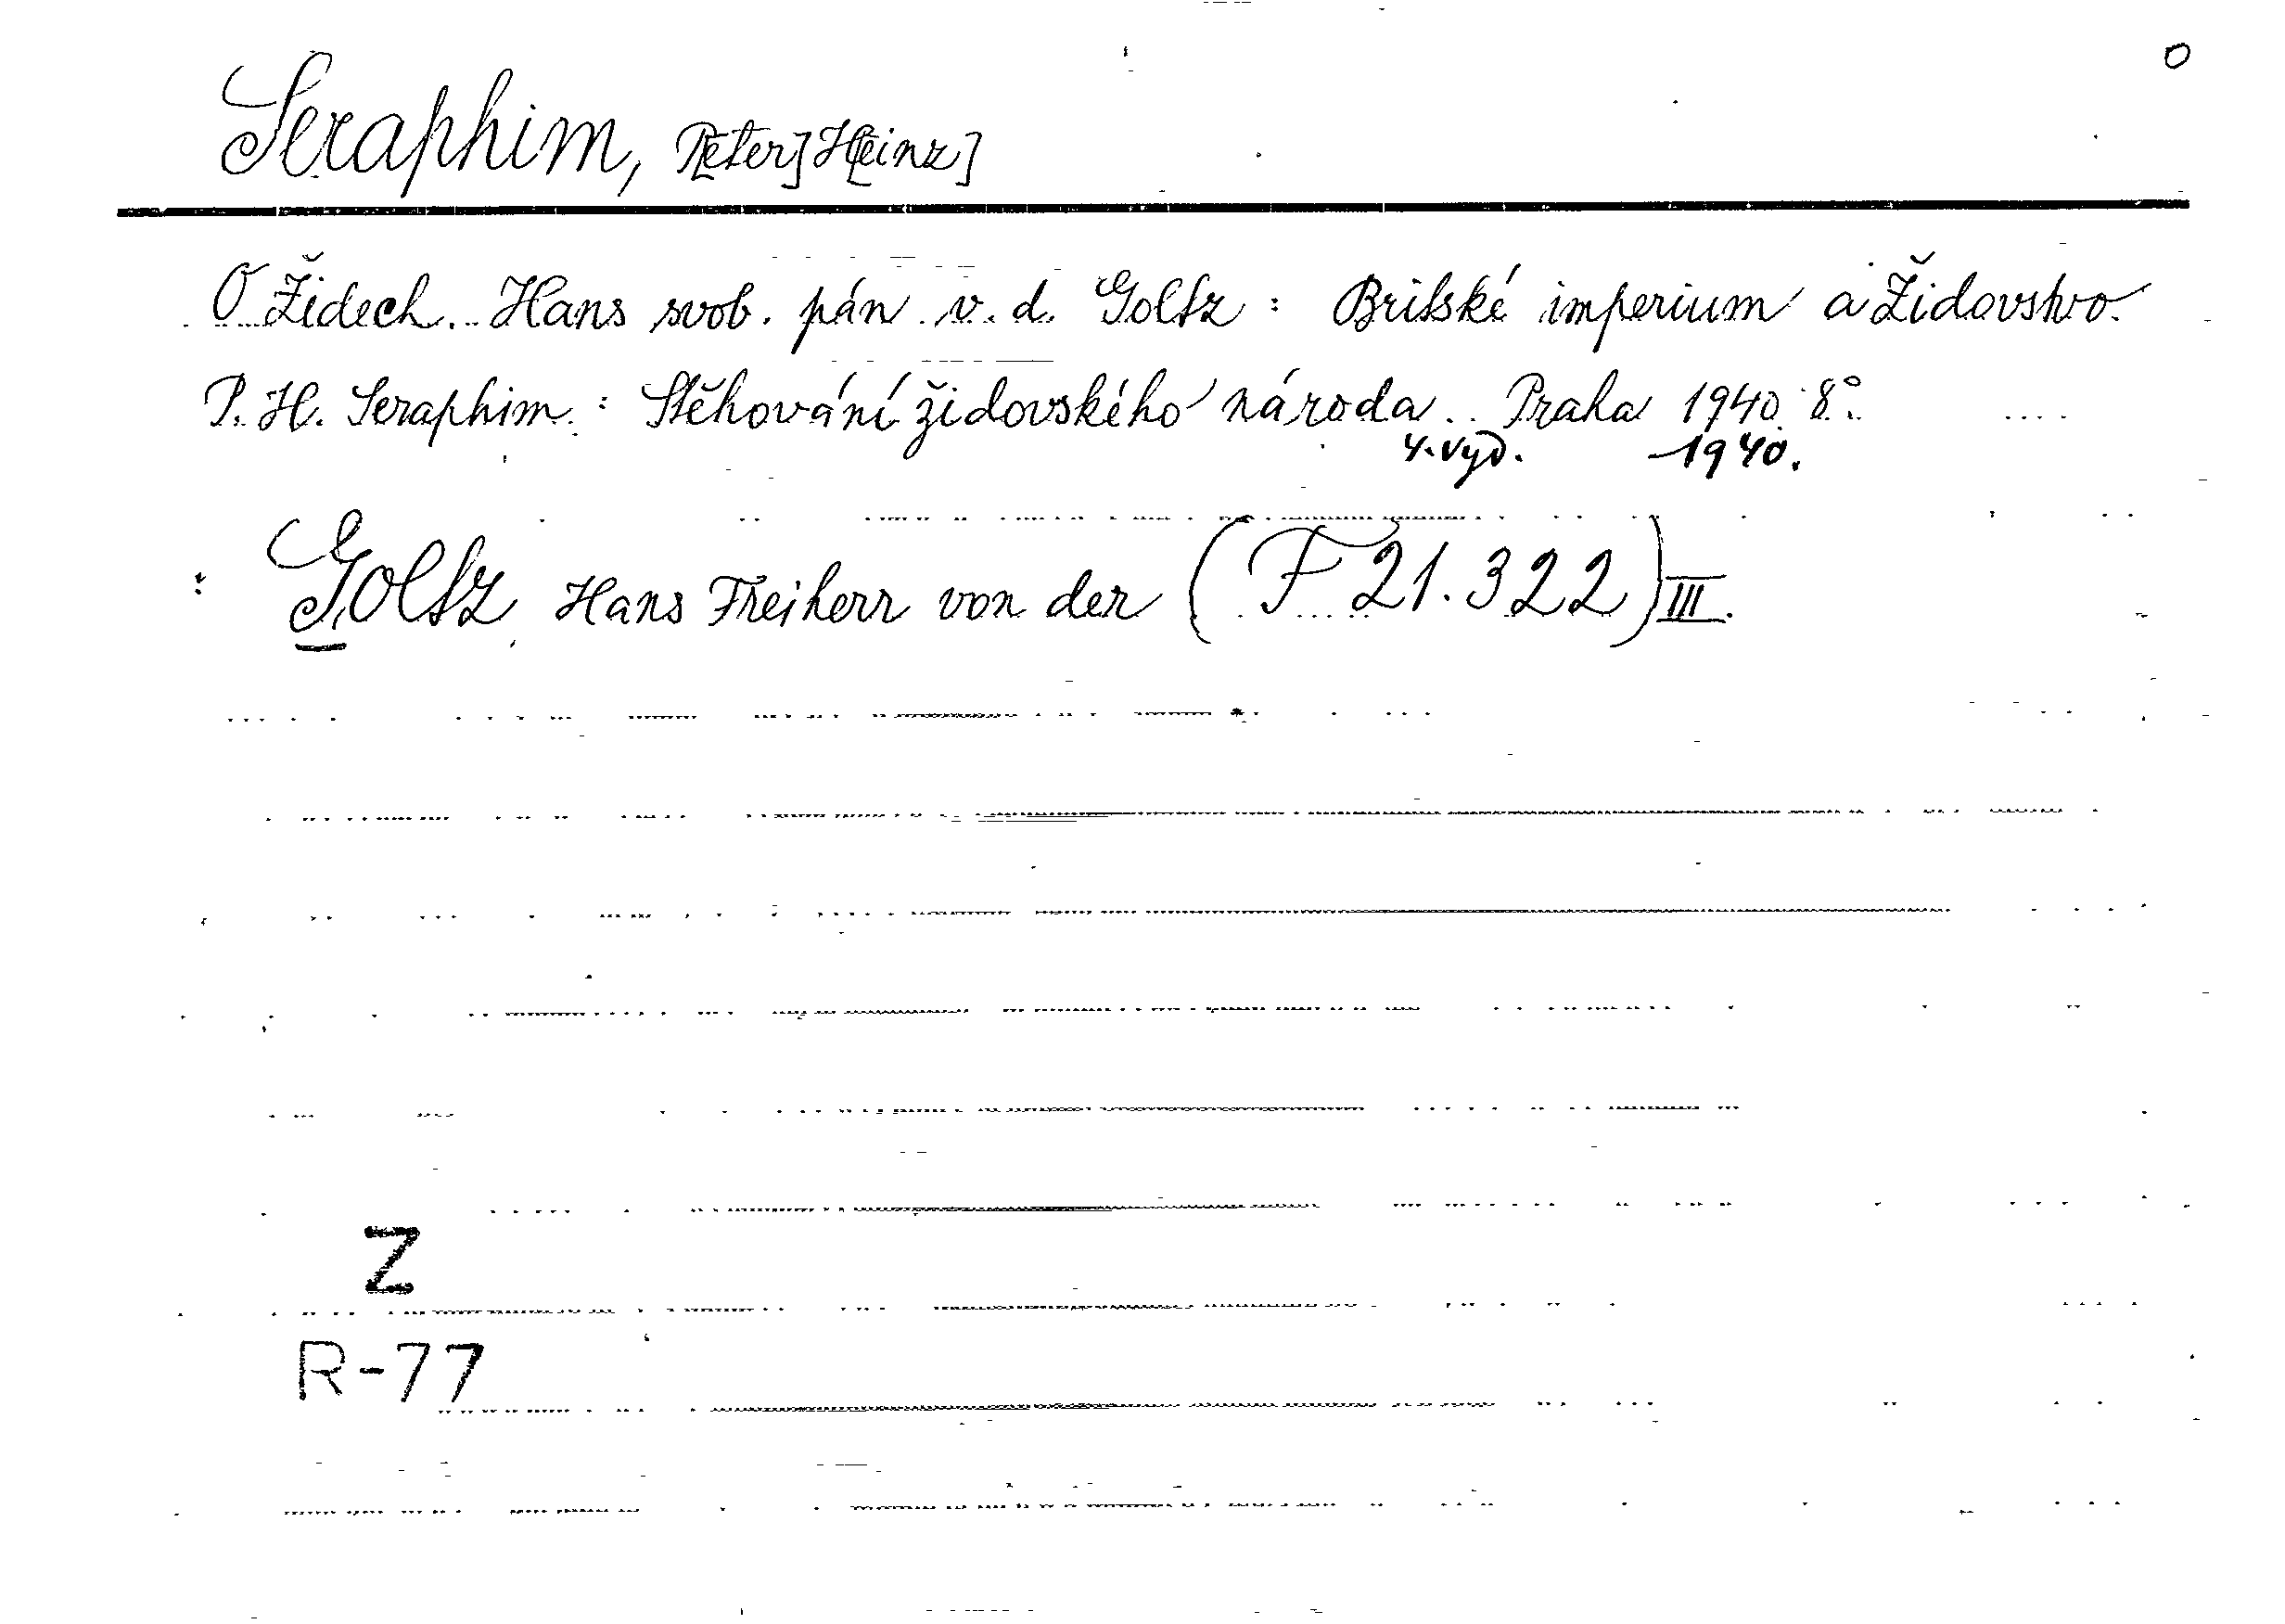 0
Seraphim, P[eter] H[einz]
O Židech. Hans svob. pán v. d. Goltz : Britské imperium a Židovstvo.
P. H. Seraphim : Stěhování židovského národa. Praha 1940. 8°.
4. vyd. -1940.
: Goltz Hans Freiherr von der (F 21.322) III.
Z
R-77